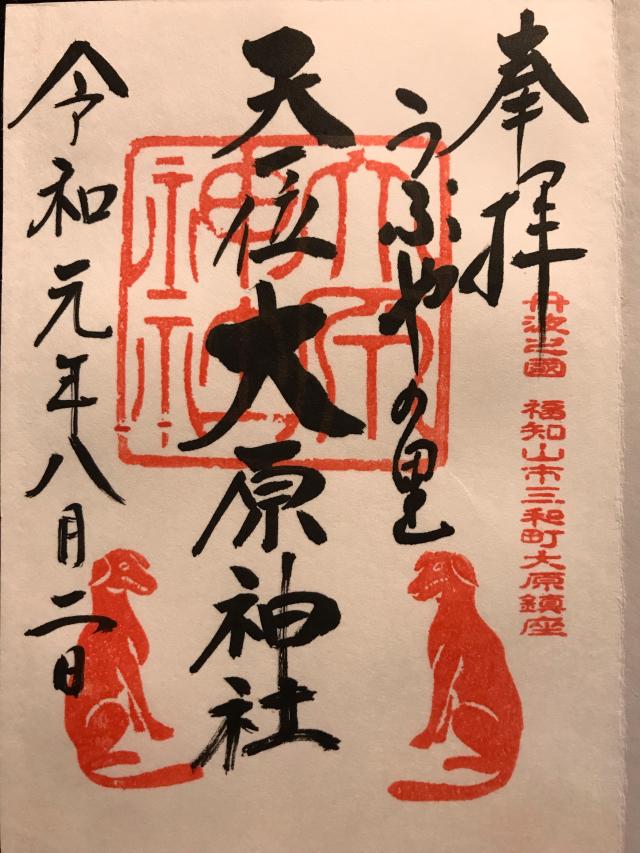 奉拝
丹波之國 福知山市三和町大原鎮座
うぶやの里
天一位大原神社
大原神社
令和元年八月二日